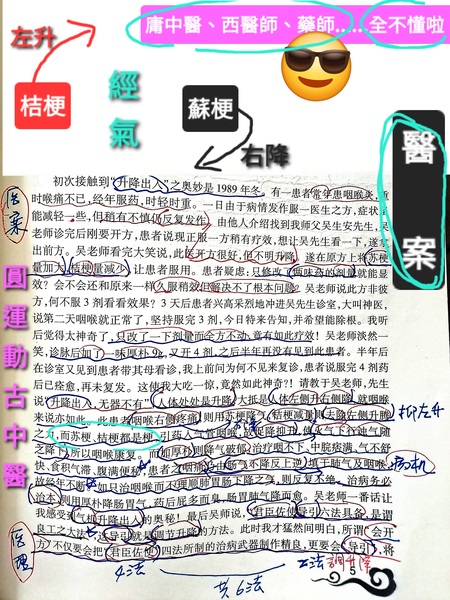 庸中醫、西醫師、藥師.....全不懂啦
左升
桔梗
經氣
蘇梗
右降
醫案
圓運動古中醫
医案
医理
初次接触到“升降出入”之奥妙是1989年冬。有一患者常年患咽喉炎,近
时喉痛不已,经年服药,时轻时重。一日由于病情发作服一医生之方,症状
能减轻一些,但稍有不慎仍反复发作。由他人介绍找到我师父吴生安先生,吴
老师诊完后刚要开方,患者说现正服一方稍有疗效,想让吴先生看一下,遂
出前方。吴老师看完大笑说,此医开方很好,但不明升降。遂在原方上将苏梗
量加大,桔梗量减少,让患者服用。患者疑虑:只修改了两味药的剂量就能显
效?会不会还和原来一样久服稍效但解决不了根本问题?吴老师说此方非彼
方,何不服3剂看看效果?3天后患者兴高采烈地冲进吴先生诊室,大叫神医,
说第二天咽喉就正常了,坚持服完3剂,今日特来告知,并希望能除根。我听
后觉得太神奇了,只改了一下剂量而全方不动,竟有如此疗效!吴老师淡然一
笑,诊脉后加了一味厚朴9g,又开4剂,之后半年再没有见到此患者。半年后
在诊室又见到患者带其母看诊,我上前问为何不见来复诊,患者说服完4剂药
后已痊愈,再未复发。这使我大吃一惊,竟然如此神奇?!请教于吴老师,先生
说“升降出入,无器不有”,人体处处是升降,大抵是人体左侧升右侧降,就咽喉
来说亦如此。此患者咽喉右侧疼痛,则用苏梗降气,桔梗减量则去除左侧升腾
之力,而苏梗、桔梗都是梗,引药入气管咽喉,故促降抑升,使火气下行迪气随
之降下,所以咽喉康复。而加厚朴则降气破郁,治疗咽不下、中脘痞满、气不舒
快、食积气滞、腹满便秘,患者之咽痛是由肠气不降反上逆,填于肺气及咽喉,
故经年不断,如只治咽喉而不理顺肺胃肠下降之气,则反复不绝。治病务必
治本,则用厚朴降肠胃气,药后屁多而臭,肠胃肺气降而愈。吴老师一番话让
我感受到气机升降出入的奥秘!最后吴师说,君臣佐使导引六法具备,是谓
良工之大法,这导引就是调节升降的方法。此时我才猛然间明白,所谓“会开
方”不仅要会把“君臣佐使”四法所制的治病武器制作精良,更要会“导引”,将
抑左升
病机
4法
2法
調升降
共6法
5